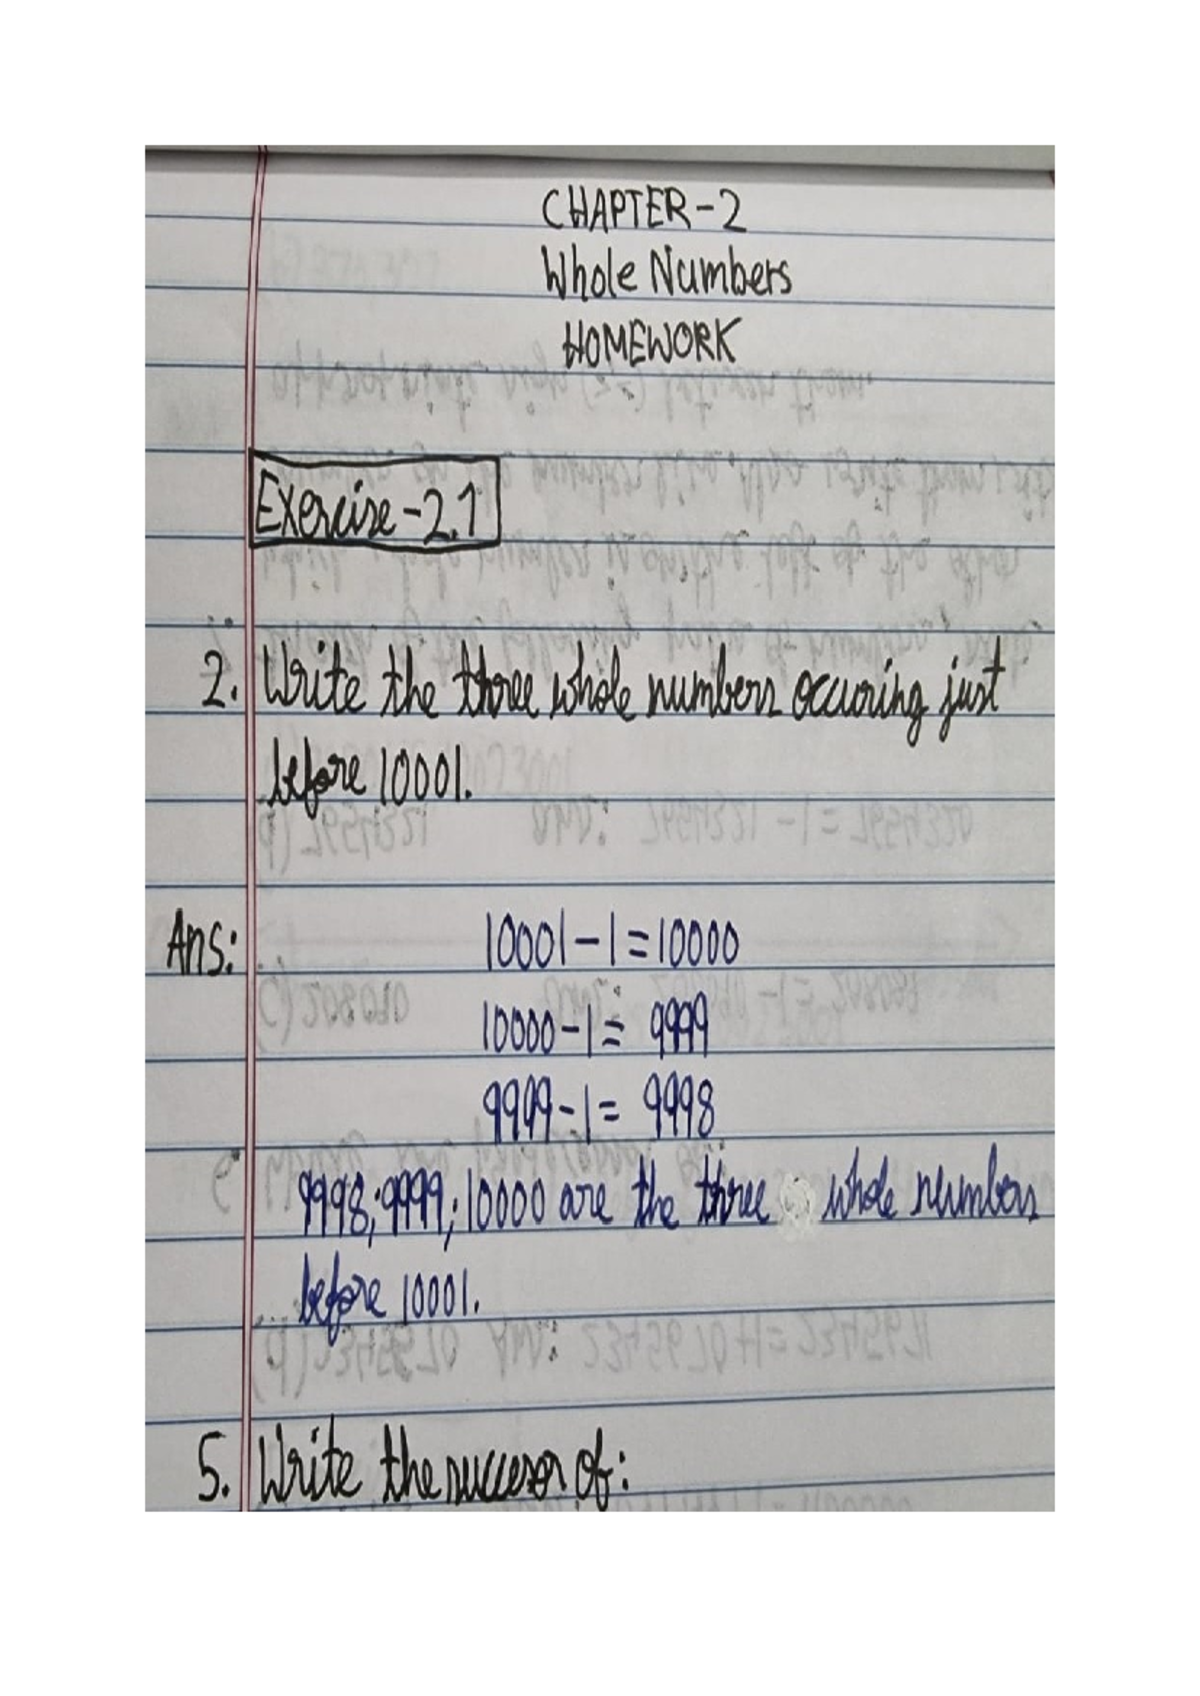 CHAPTER-2
Whole Numbers
HOMEWORK
Exercise-2.1
2. Write the three whole numbers occuring just
before 10001.
Ans: 10001-1=10000
10000-1= 9999
9999-1= 9998
9998; 9999; 10000 are the three whole numbers
before 10001.
5. Write the succesor of: